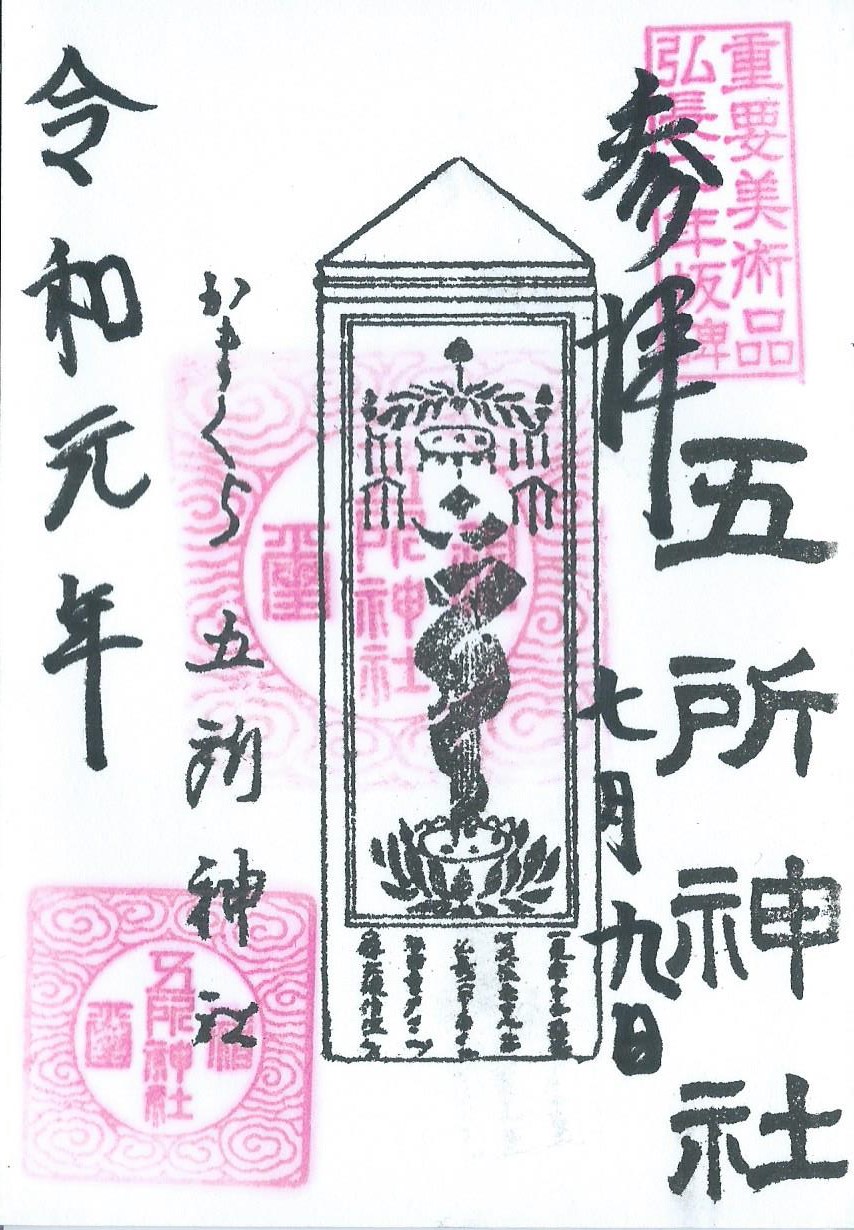 重要美術品
弘長二年板碑
参拝
五所神社
七月九日
かまくら 五所神社
令和元年
五所神社